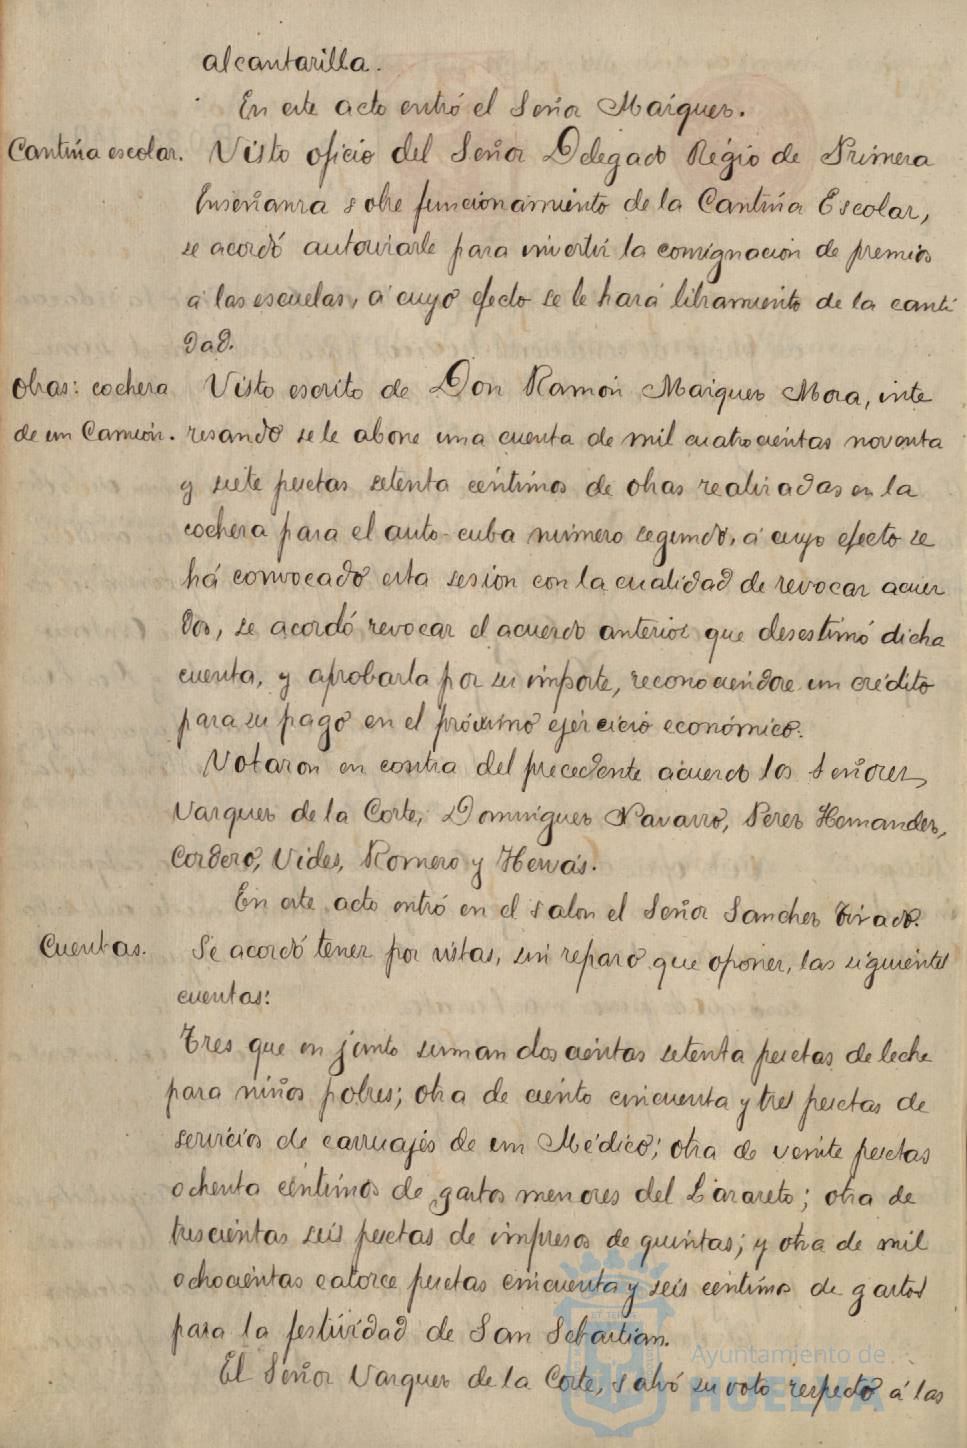 alcantarilla.
En este acto entró el Señor Maiquez.
Cantina escolar. Visto oficio del Señor Delegado Regio de Primera
Enseñanza sobre funcionamiento de la Cantina Escolar,
se acordó autorizarle para invertir la consignación de premios
á las escuelas, á cuyo efecto se le hará libramiento de la canti
dad.
Obras: cochera Visto escrito de Don Ramón Maiquez Mora, inte
de un Camión. resando se le abone una cuenta de mil cuatrocientas noventa
y siete pesetas setenta céntimos de obras realizadas en la
cochera para el auto-cuba número segundo, á cuyo efecto se
há convocado esta sesión con la cualidad de revocar acuer
dos, se acordó revocar el acuerdo anterior que desestimó dicha
cuenta, y aprobarla por su importe, reconociendose un crédito
para su pago en el próximo ejercicio económico.
Votaron en contra del precedente acuerdo los Señores,
Vazquez de la Corte, Dominguez Navarro, Perez Hernandez,
Cordero, Vides, Romero y Hervás.
En este acto entró en el salon el Señor Sanchez Tirado.
Cuentas. Se acordó tener por vistas, sin reparo que oponer, las siguientes
cuentas:
Tres que en junto suman doscientas setenta pesetas de leche
para niños pobres; otra de ciento cincuenta y tres pesetas de
servicios de carruajes de un Médico; otra de veinte pesetas
ochenta céntimos de gastos menores del Lazareto; otra de
trescientas seis pesetas de impresos de quintas; y otra de mil
ochocientas catorce pesetas cincuenta y seis céntimos de gastos
para la festividad de San Sebastian.
El Señor Vazquez de la Corte, salvó su voto respecto á las
Ayuntamiento de
HUELVA